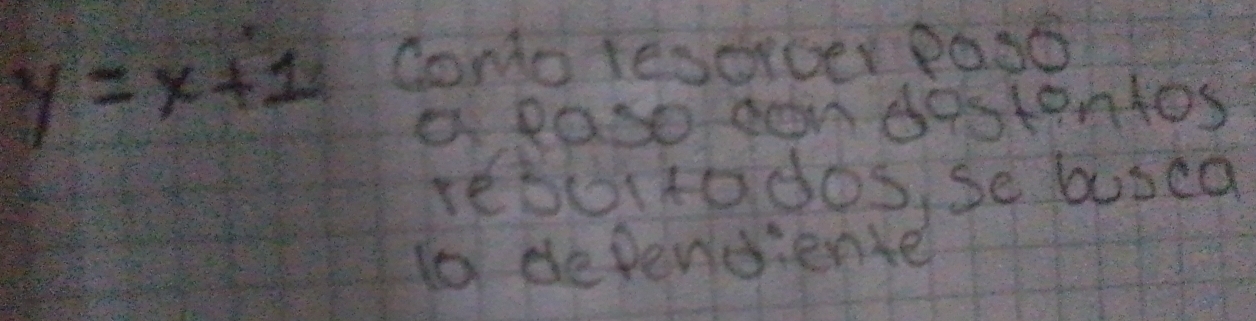 y = x + 1
Como resolver paso
a paso con dostontos
resultados, se busca
la dependiente